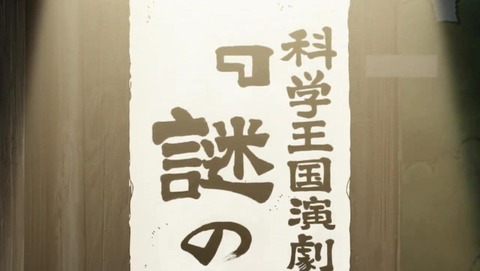 科学王国演劇
『謎の